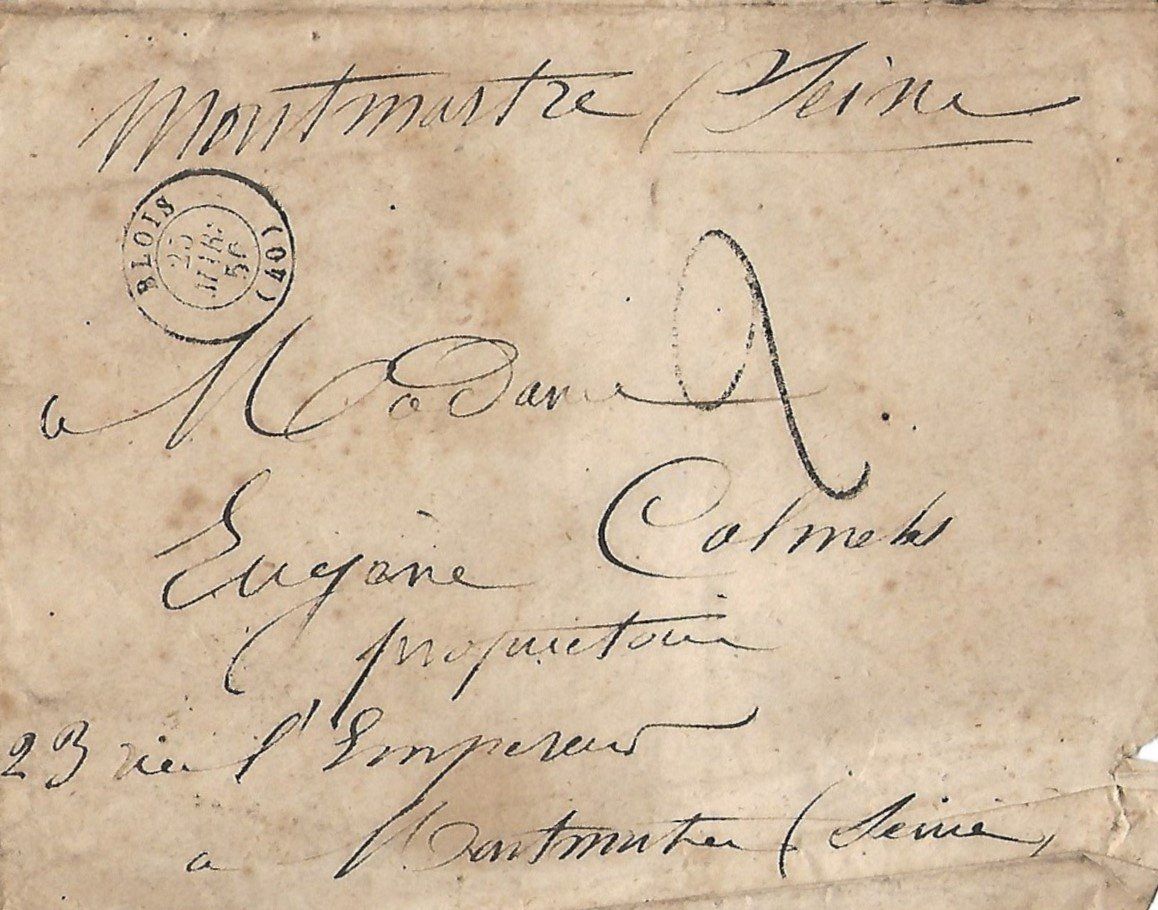 Montmartre (Seine
BLOIS (40)
25
MARS
56
2
a Madame
Eugène Colmels
propriétaire
23 rue l'Empereur
a Montmartre (Seine)